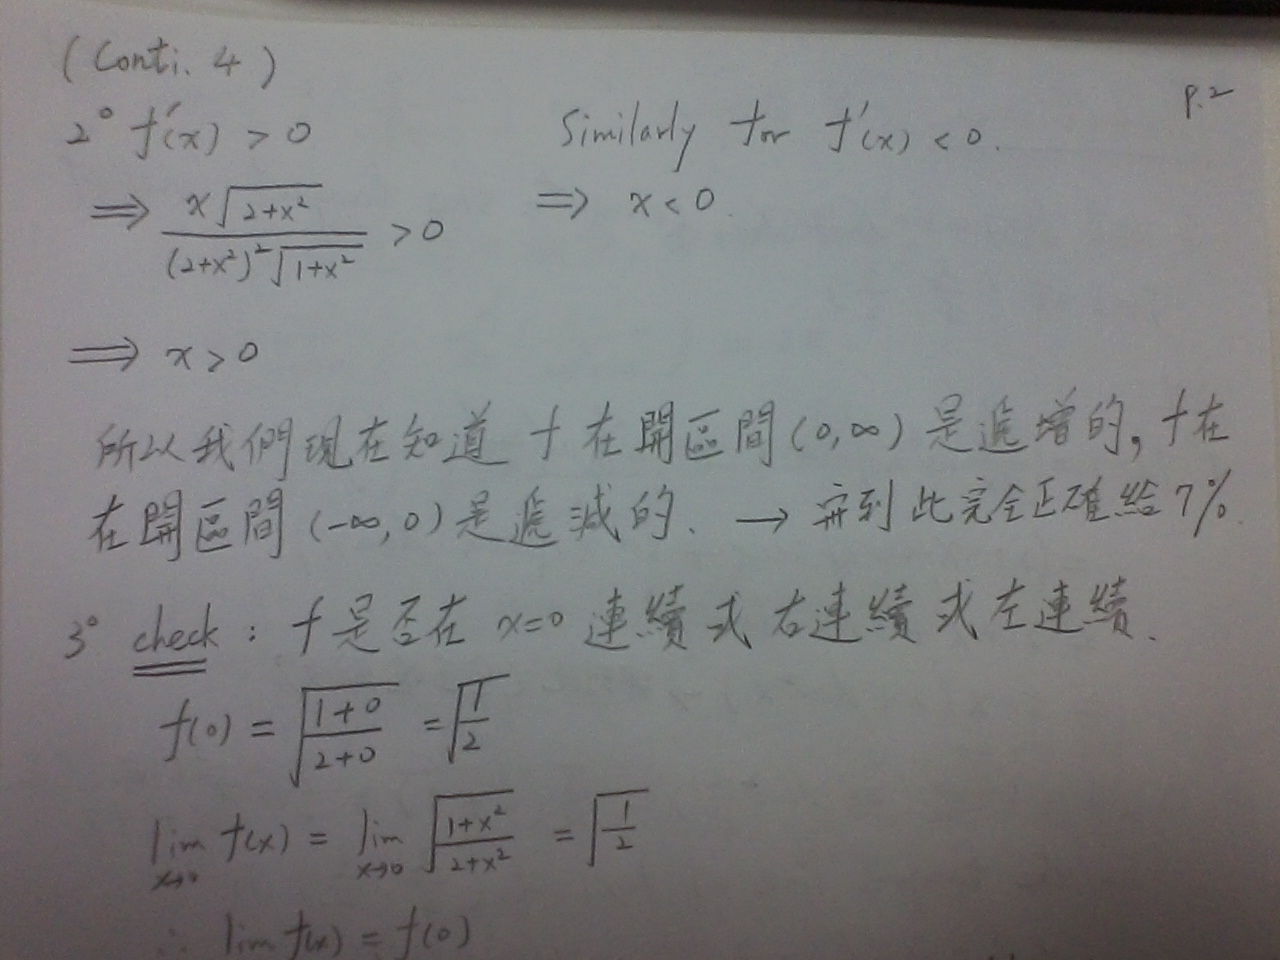 (Conti. 4)
p.2
2° f'(x) > 0
Similarly for f'(x) < 0.
⟹ x√(2+x²) / (2+x²)²√(1+x²) > 0
⟹ x < 0.
⟹ x > 0
所以我們現在知道 f 在開區間 (0,∞) 是遞增的, f在
在開區間 (-∞,0) 是遞減的. → 寫到此完全正確給7%.
3° check : f是否在 x=0 連續或右連續或左連續.
f(0) = √((1+0)/(2+0)) = √(1/2)
lim x→0 f(x) = lim x→0 √((1+x²)/(2+x²)) = √(1/2)
∴ lim f(x) = f(0)